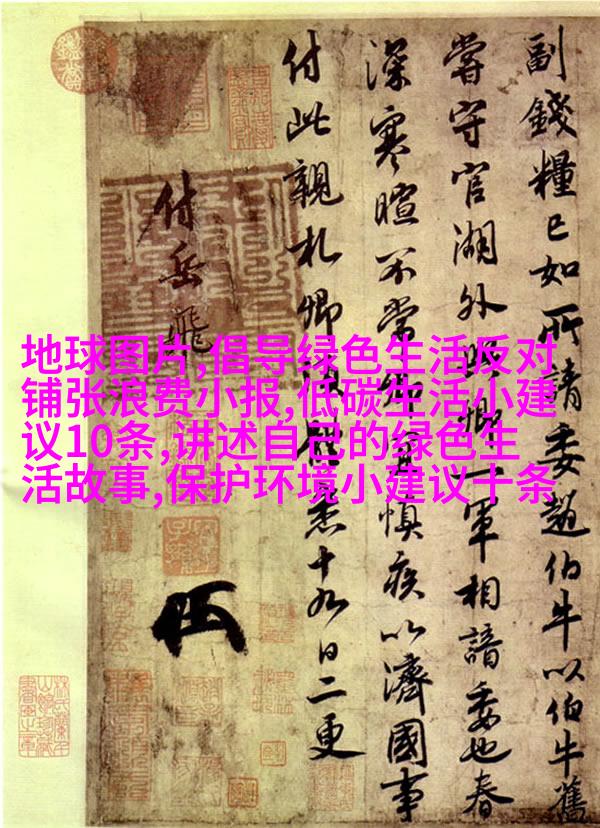 地球图片,倡导绿色生活反对
铺张浪费小报,低碳生活小建
议10条,讲述自己的绿色生
活故事,保护环境小建议十条
副錢糧已如所請委趙伯牛以伯牛舊
嘗守官湖外與卿一軍相諳委也春
深寒暄不常卿宜慎疾以濟國事
付此親札卿須體悉十九日二更
付岳飛